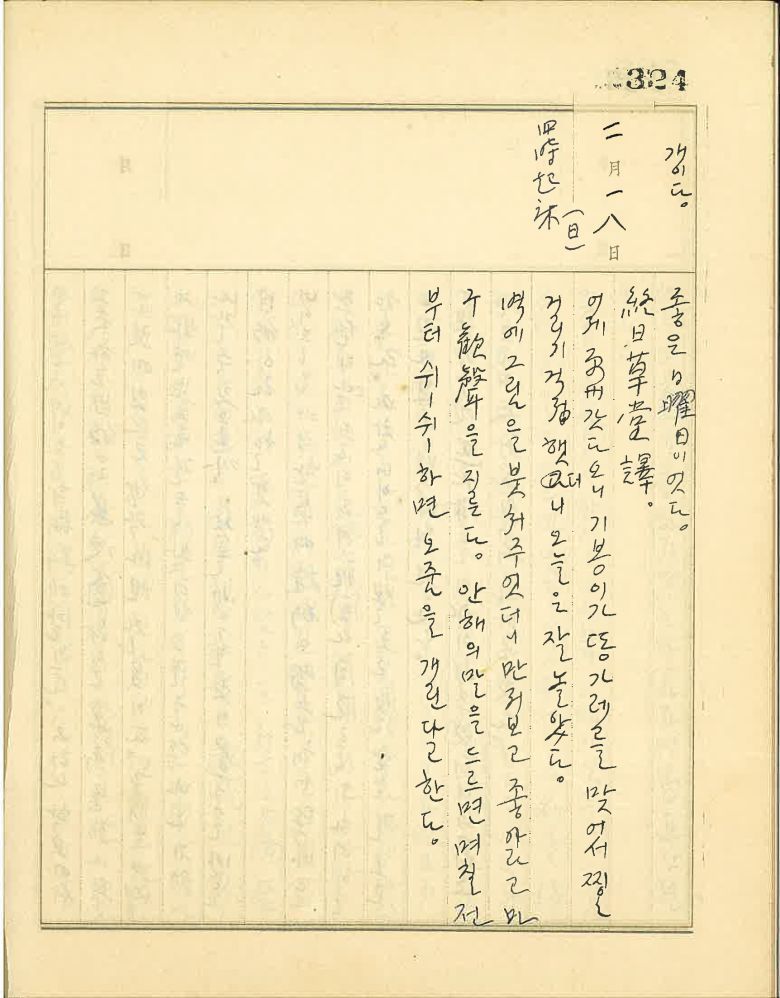 324
개이다.
二月一八日
(日)
四時起床
좋은 日曜日이엇다.
終日草堂譯。
어제 갓다오니 기봉이가 똥가레를 맞어서 찔
걸리기 햇더니 오늘은 잘 놀앗다。
벽에 그림을 붓처주엇더니 만저보고 좋아라고 마
구 歡聲을 질른다. 안해의 말을 드르면 며칠 전
부터 쉬ー쉬 하면 오줌을 개린다고 한다。